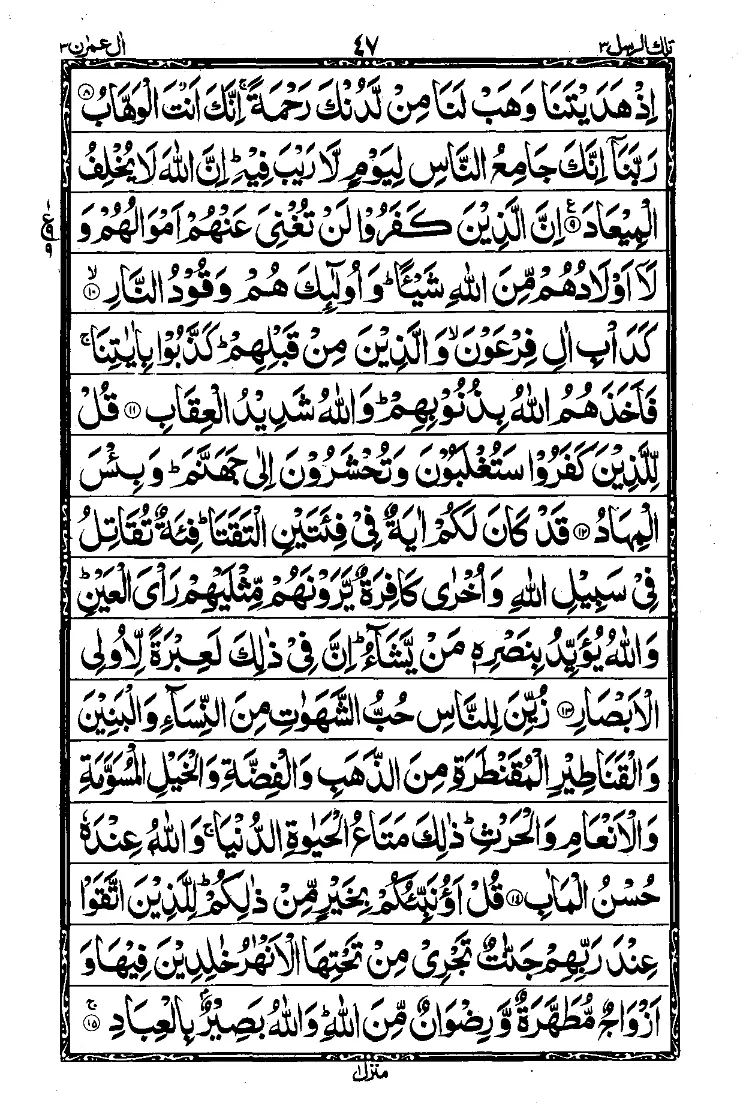 تلك الرسل ۳ ۴۷ اٰل عمرٰن ۳
اِذْ هَدَيْتَنَا وَهَبْ لَنَا مِنْ لَّدُنْكَ رَحْمَةً ۚ اِنَّكَ اَنْتَ الْوَهَّابُ ۸
رَبَّنَاۤ اِنَّكَ جَامِعُ النَّاسِ لِيَوْمٍ لَّا رَيْبَ فِيْهِ ؕ اِنَّ اللّٰهَ لَا يُخْلِفُ
الْمِيْعَادَ ۹ ع اِنَّ الَّذِيْنَ كَفَرُوْا لَنْ تُغْنِىَ عَنْهُمْ اَمْوَالُهُمْ وَ
لَاۤ اَوْلَادُهُمْ مِّنَ اللّٰهِ شَيْـًٔا ؕ وَ اُولٰٓئِكَ هُمْ وَقُوْدُ النَّارِ ۙ ۱۰
كَدَاْبِ اٰلِ فِرْعَوْنَ ۙ وَ الَّذِيْنَ مِنْ قَبْلِهِمْ ؕ كَذَّبُوْا بِاٰيٰتِنَا ۚ
فَاَخَذَهُمُ اللّٰهُ بِذُنُوْبِهِمْ ؕ وَاللّٰهُ شَدِيْدُ الْعِقَابِ ۱۱ قُلْ
لِّلَّذِيْنَ كَفَرُوْا سَتُغْلَبُوْنَ وَتُحْشَرُوْنَ اِلٰى جَهَنَّمَ ؕ وَبِئْسَ
الْمِهَادُ ۱۲ قَدْ كَانَ لَكُمْ اٰيَةٌ فِىْ فِئَتَيْنِ الْتَقَتَا ؕ فِئَةٌ تُقَاتِلُ
فِىْ سَبِيْلِ اللّٰهِ وَ اُخْرٰى كَافِرَةٌ يَّرَوْنَهُمْ مِّثْلَيْهِمْ رَاْىَ الْعَيْنِ ؕ
وَاللّٰهُ يُؤَيِّدُ بِنَصْرِهٖ مَنْ يَّشَآءُ ؕ اِنَّ فِىْ ذٰلِكَ لَعِبْرَةً لِّاُولِى
الْاَبْصَارِ ۱۳ زُيِّنَ لِلنَّاسِ حُبُّ الشَّهَوٰتِ مِنَ النِّسَآءِ وَالْبَنِيْنَ
وَالْقَنَاطِيْرِ الْمُقَنْطَرَةِ مِنَ الذَّهَبِ وَالْفِضَّةِ وَالْخَيْلِ الْمُسَوَّمَةِ
وَالْاَنْعَامِ وَالْحَرْثِ ؕ ذٰلِكَ مَتَاعُ الْحَيٰوةِ الدُّنْيَا ۚ وَاللّٰهُ عِنْدَهٗ
حُسْنُ الْمَاٰبِ ۱۴ قُلْ اَؤُنَبِّئُكُمْ بِخَيْرٍ مِّنْ ذٰلِكُمْ ؕ لِلَّذِيْنَ اتَّقَوْا
عِنْدَ رَبِّهِمْ جَنّٰتٌ تَجْرِىْ مِنْ تَحْتِهَا الْاَنْهٰرُ خٰلِدِيْنَ فِيْهَا وَ
اَزْوَاجٌ مُّطَهَّرَةٌ وَّ رِضْوَانٌ مِّنَ اللّٰهِ ؕ وَاللّٰهُ بَصِيْرٌۢ بِالْعِبَادِ ۚ ۱۵
منزل ۱